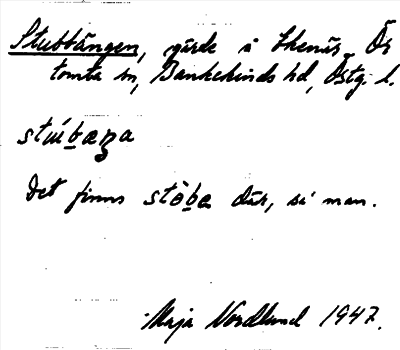 Stubbängen, gärde å Ekenäs, Ör
tomta sn, Bankekinds hd, Östg. l.
stúbaŋa
Det finns stòba där, sä' man.
Maja Nordlund 1947.